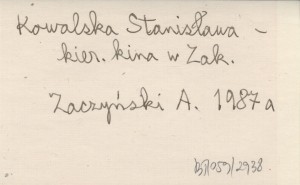 Kowalska Stanisława -
kier. kina w Zak.
Zaczyński A. 1987a